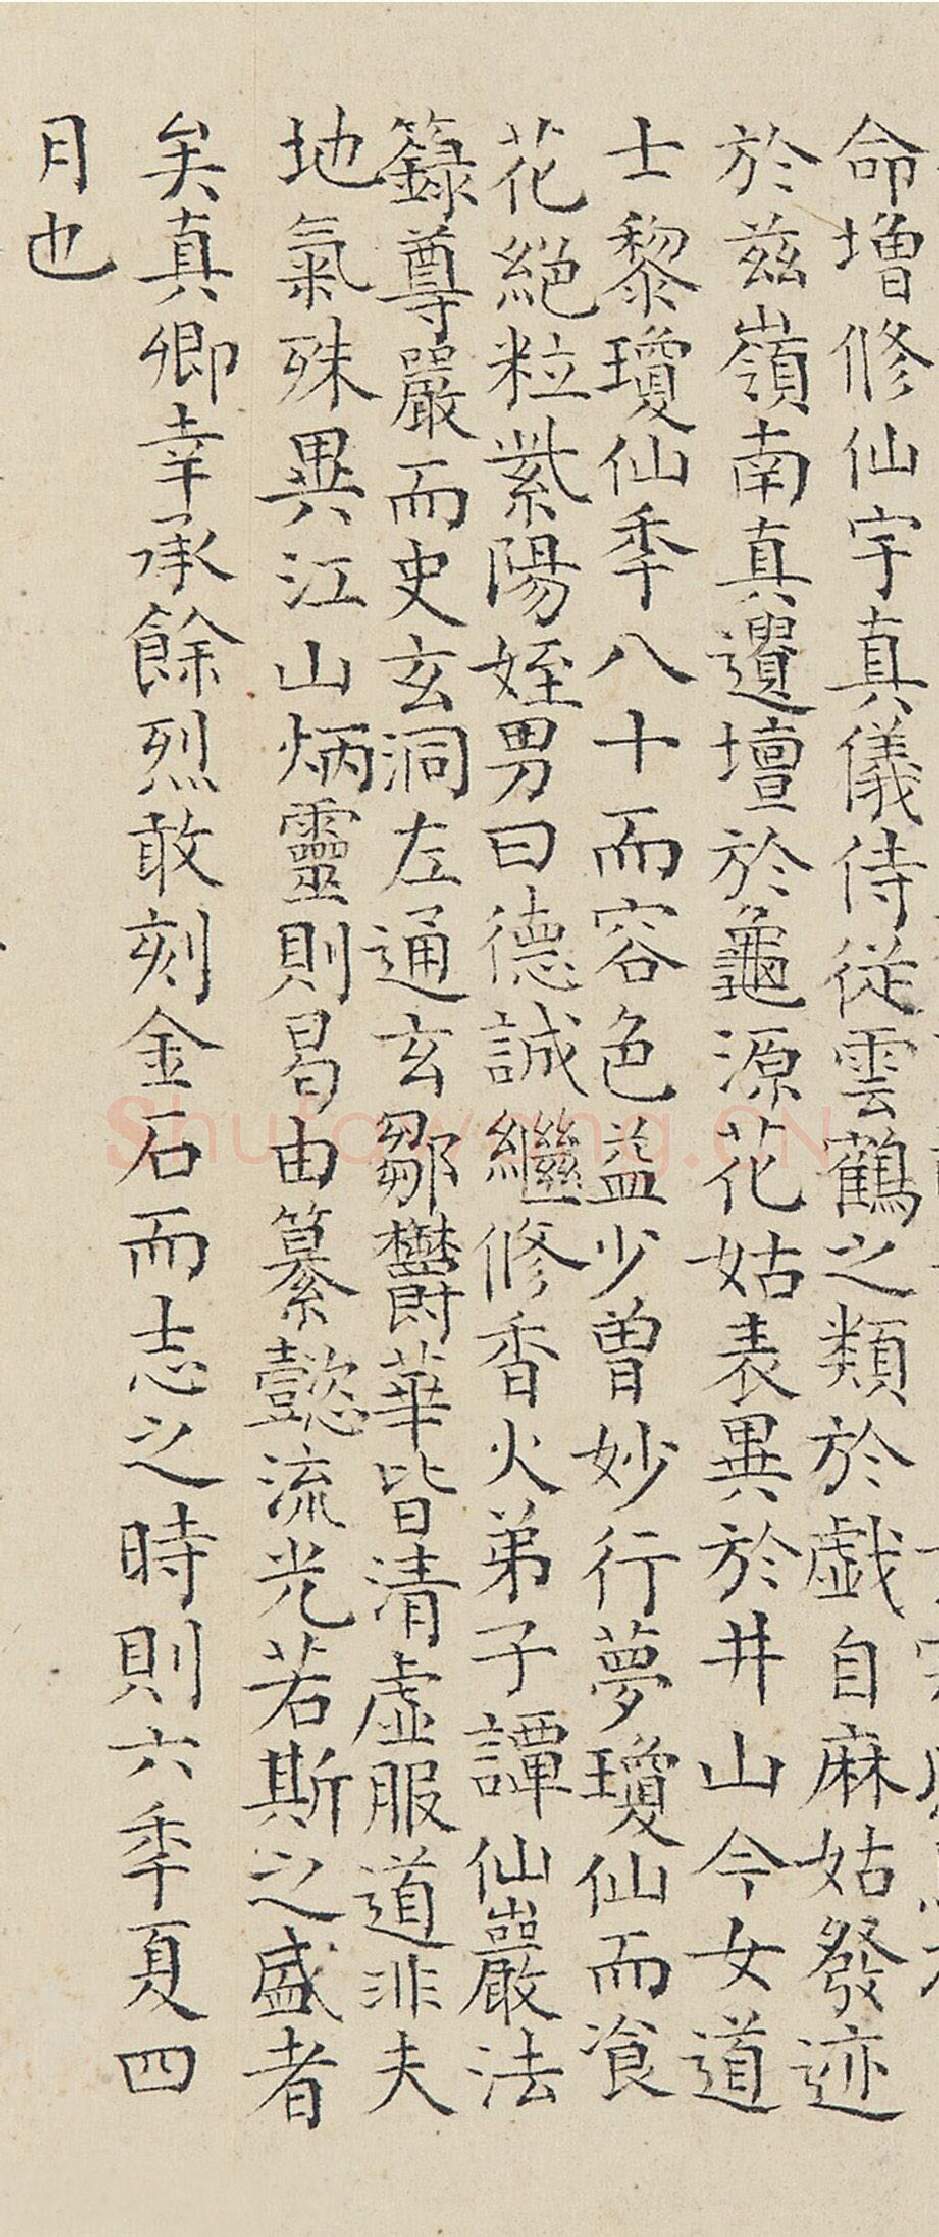 命增修仙宇真儀侍從雲鶴之類於戲自麻姑發迹
於兹嶺南真遺壇於龜源花姑表異於井山今女道
士黎瓊仙秊八十而容色益少曾妙行夢瓊仙而飡
花絕粒紫陽姪男曰德誠繼修香火弟子譚仙巖法
籙尊嚴而史玄洞左通玄鄒欝華皆清虛服道非夫
地氣殊異江山炳靈則曷由纂懿流光若斯之盛者
矣真卿幸承餘烈敢刻金石而志之時則六秊夏四
月也
Shufawang.CN